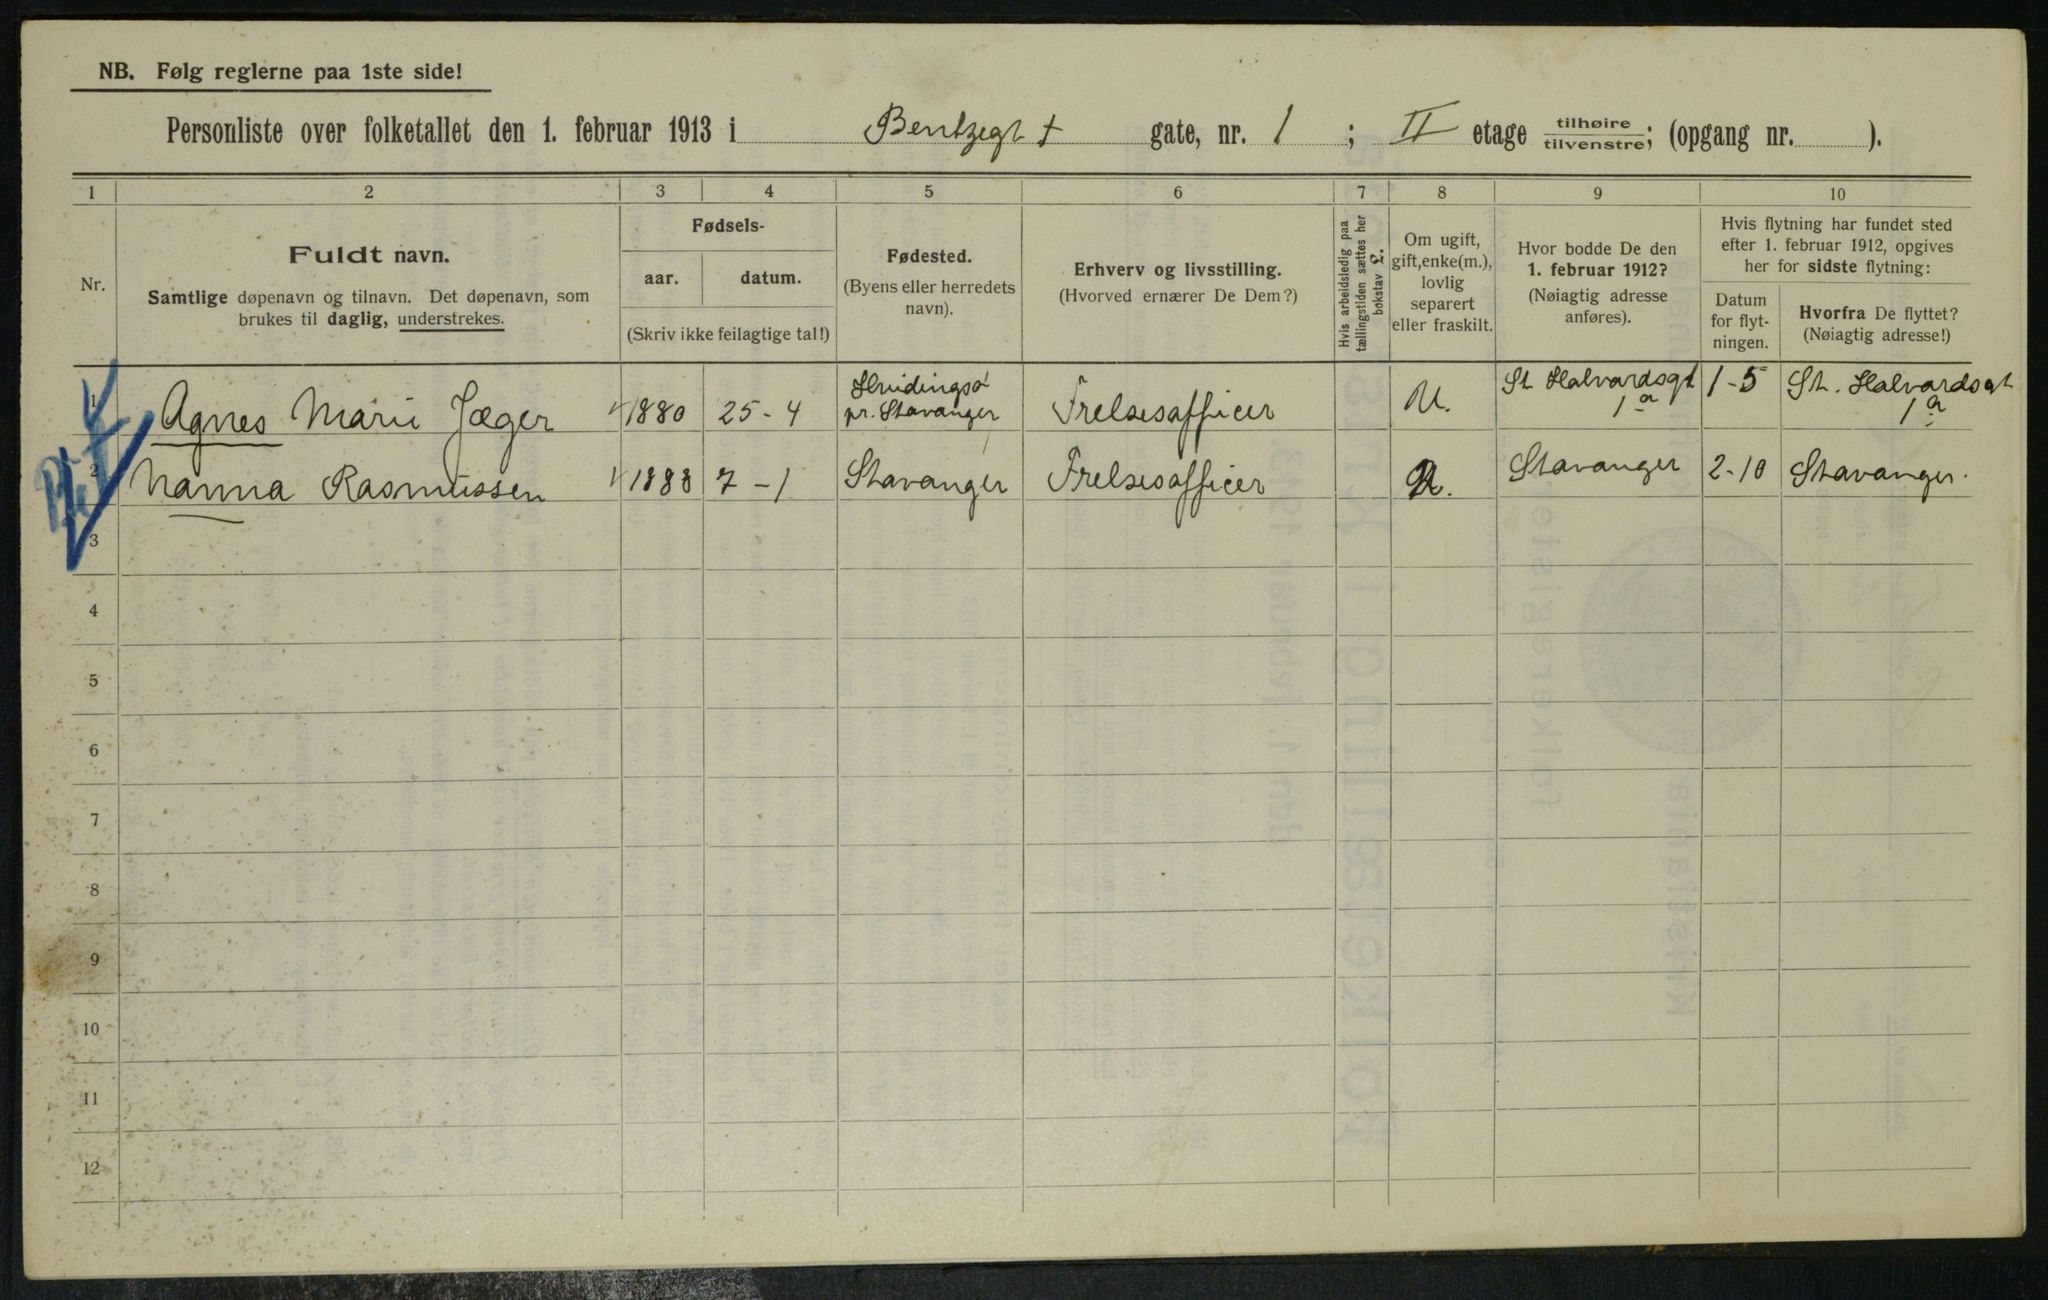 NB. Følg reglerne paa 1ste side!
Personliste over folketallet den 1. februar 1913 i Bentzegt gate, nr. 1 ; II etage tilhøire/tilvenstre; (opgang nr. ).
1 2 3 4 5 6 7 8 9 10
Nr.
Fuldt navn.
Samtlige døpenavn og tilnavn. Det døpenavn, som
brukes til daglig, understrekes.
Fødsels-
aar. datum.
(Skriv ikke feilagtige tal!)
Fødested.
(Byens eller herredets
navn).
Erhverv og livsstilling.
(Hvorved ernærer De Dem?)
Hvis arbeidsledig paa
tællingstiden sættes her
bokstav L.
Om ugift,
gift, enke(m.),
lovlig
separert
eller fraskilt.
Hvor bodde De den
1. februar 1912?
(Nøiagtig adresse
anføres).
Hvis flytning har fundet sted
efter 1. februar 1912, opgives
her for sidste flytning:
Datum
for flyt-
ningen.
Hvorfra De flyttet?
(Nøiagtig adresse!)
1 Agnes Marie Jæger 1880 25-4 Hvidingsø pr. Stavanger Frelsesofficer U. St Halvardsgt 1a 1-5 St. Halvardsgt 1a
2 Nanna Rasmussen 1888 7-1 Stavanger Frelsesofficer U. Stavanger 2-10 Stavanger.
3
4
5
6
7
8
9
10
11
12